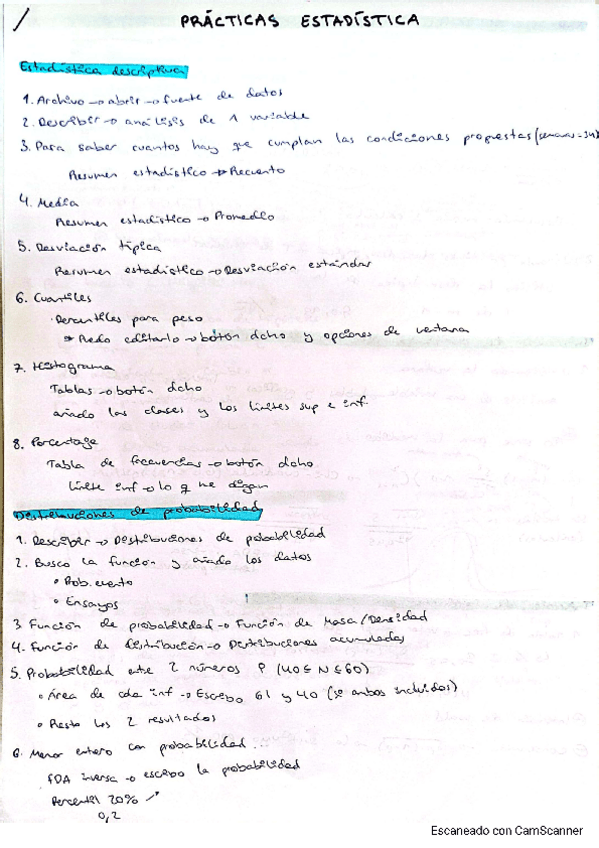 PRÁCTICAS ESTADÍSTICA
Estadística descriptiva
1. Archivo → abrir → fuente de datos
2. Describir → análisis de 1 variable
3. Para saber cuantos hay que cumplan las condiciones propuestas (semanas=34)
Resumen estadístico → Recuento
4. Media
Resumen estadístico → Promedio
5. Desviación típica
Resumen estadístico → Desviación estándar
6. Cuantiles
· Percentiles para peso
→ Puedo editarlo → botón dcho y opciones de ventana
7. Histograma
Tablas → botón dcho
añado las clases y los límites sup e inf
8. Porcentaje
Tabla de frecuencias → botón dcho
límite inf → lo q me digan
Distribuciones de probabilidad
1. Describir → Distribuciones de probabilidad
2. Busco la función y añado los datos
• Prob. evento
• Ensayos
3 Función de probabilidad → Función de Masa / Densidad
4. Función de distribución → Distribuciones acumuladas
5. Probabilidad entre 2 números P (40 ≤ N ≤ 60)
• Área de cda inf → Escribo 61 y 40 (si ambos incluidos)
• Resto los 2 resultados
6. Menor entero con probabilidad...
FDA inversa → escribo la probabilidad
Percentil 20%
0,2
Escaneado con CamScanner